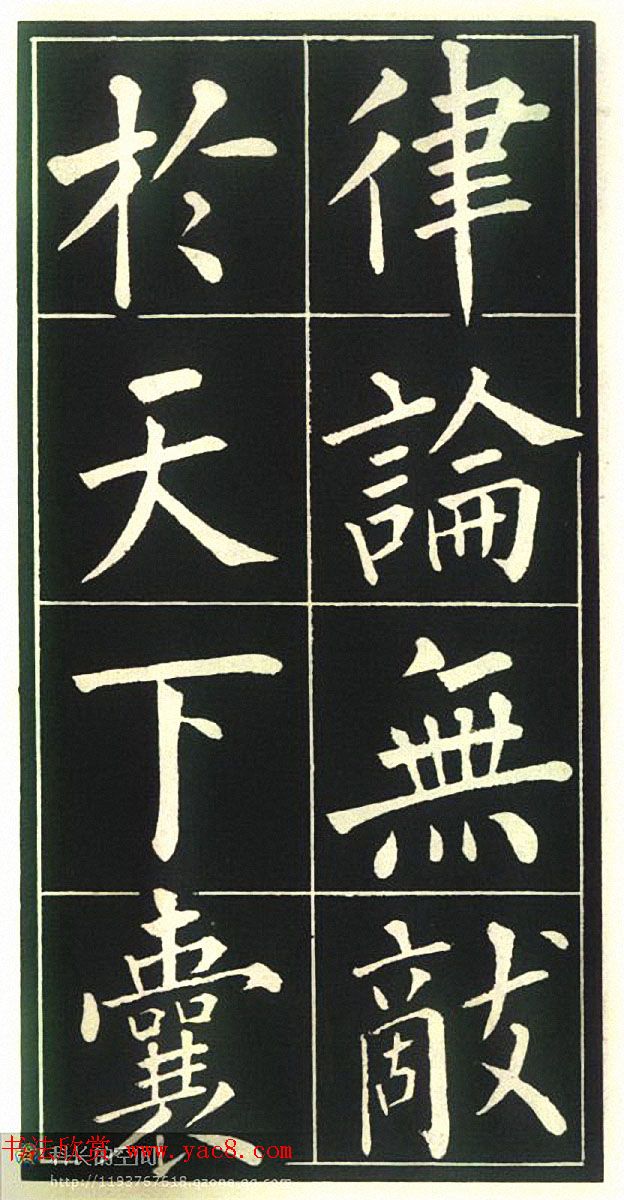 律論無敵
於天下囊
书法欣赏 www.yac8.com
http://1193767618.qzone.qq.com